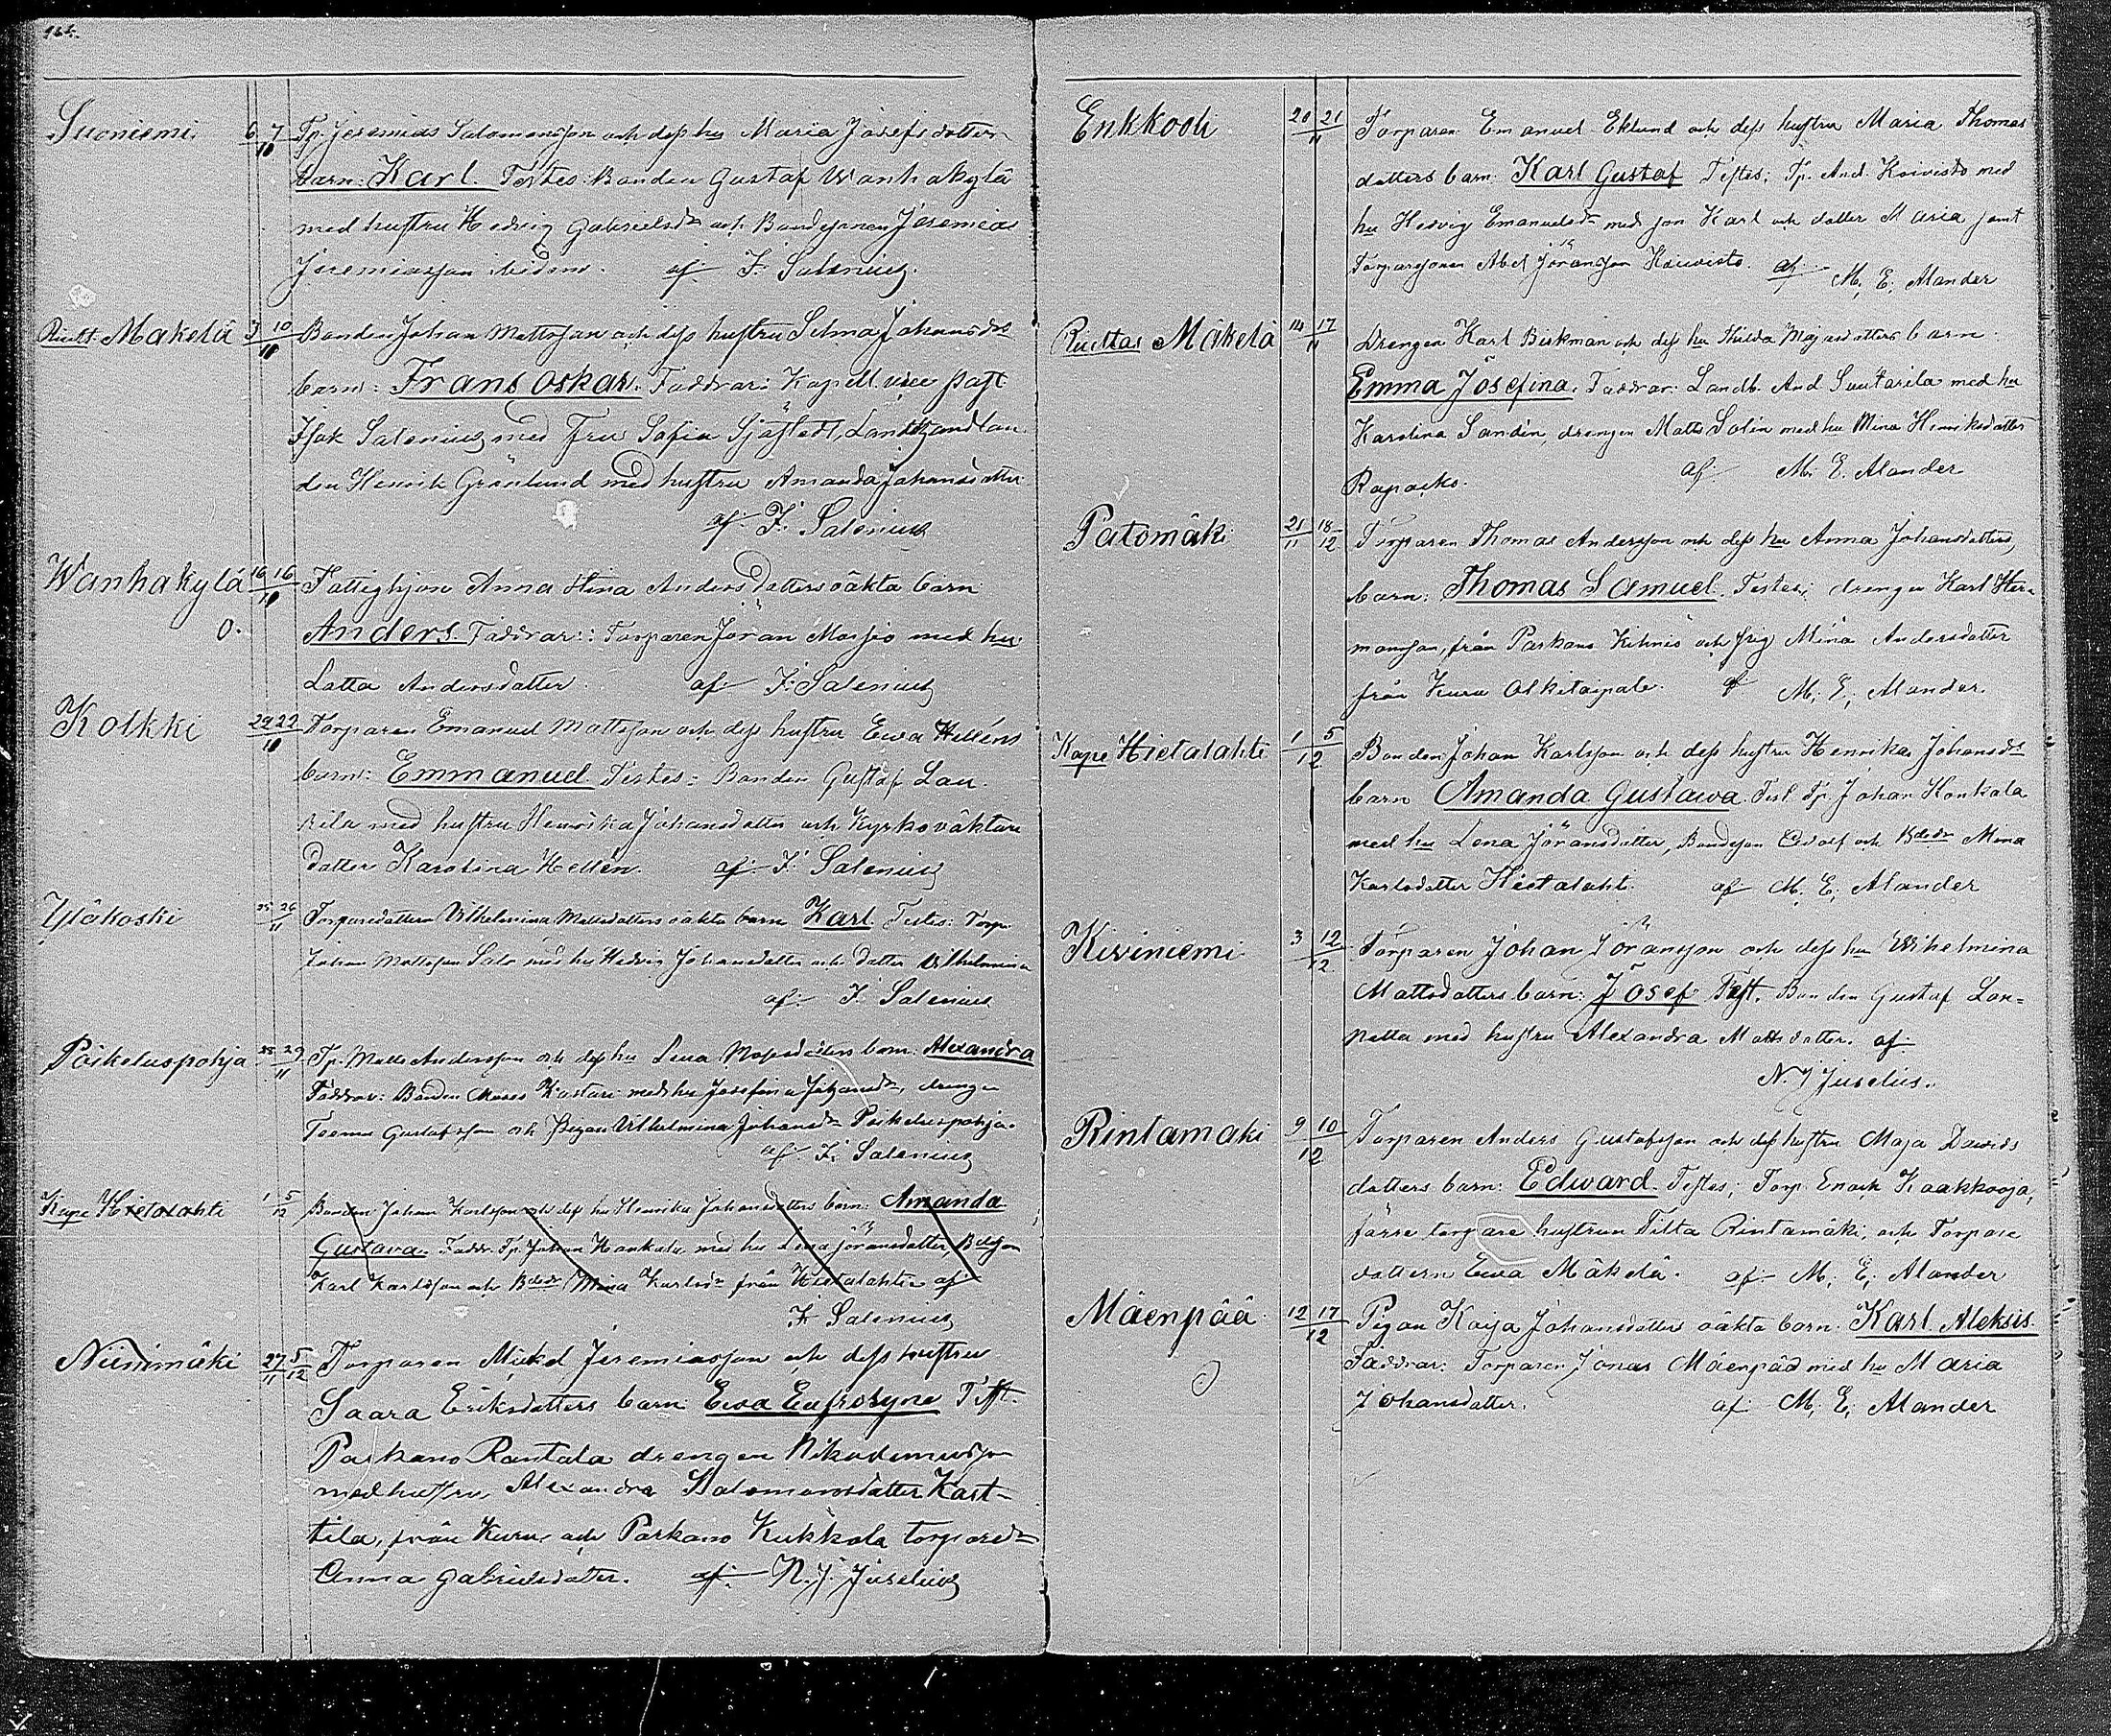 Suoniemi 6 7/10 Tp. Jeremias Salomonsson och dess hu Maria Josefsdotters
barn: Karl. Testes: Bonden Gustaf Wanhakylä
med hustru Hedvig Gabrielsdr och Bondesonen Jeremias
Jeremiasson ibidem. af I. Salenius.
Ruott. Makelä 3 10/10 Bonden Johan Mattsson och dess hustru Selma Johansdrs
barn: Frans Oskar. Faddrar: Kapell. vice past
Isak Salenius med fru Sofia Sjöstedt, Landthandlan
den Henrik Grönlund med hustru Amanda Johansdotter
af I. Salenius
Wanhakylä 16 16/10 Fattighjon Anna Stina Andersdotters oäkta barn
o. Anders. Faddrar: Torparen Jöran Marsjö med hu
Lotta Andersdotter. af I. Salenius
Kolkki 29 22/10 Torparen Emanuel Mattsson och dess hustru Ewa Helléns
barn: Emmanuel Testes: Bonden Gustaf Lau
rila med hustru Henrika Johansdotter och Kyrkoväktare
dotter Karolina Hellén. af I. Salenius
Yläkoski 25 26/11 Torparedottern Vilhelmina Mattsdotters oäkta barn Karl. Testes: Torp.
Johan Mattsson Salo med hu Hedvig Johansdotter och dotter Vilhelmina
af I. Salenius
Poikeluspohja 25 29/11 Tp. Matts Andersson och dess hu Lena Mosesdotters barn: Alexandra
Faddrar: Bonden Moses Kustari med hu Josefina Johansdr, drengen
Toemas Gustafsson och pigan Vilhelmina Johansdr Poikeluspohja.
af I. Salenius
Kape Hietalahti 1 5/12 Bonden Johan Karlsson och dess hu Henrika Johansdotters barn: Amanda
Gustava. Faddr. Tp. Johan Konkala med hu Lena Jöransdotter, Bdeson
Karl Karlsson och Bdedr Mina Karlsdr från Hietalahti af
I. Salenius
Niinimäki 27/11 5/12 Torparen Mickel Jeremiasson och dess hustru
Saara Eriksdotters barn: Ewa Eufrosyne Test.
Parkano Rantala drengen Nikodemusson
med hustru Alexandra Salomonsdotter Kart-
tila, från Kuru och Parkano Kukkola torparedr
Anna Gabrielsdotter. af N. J. Juselius
Enkkooli 20 21/11 Torparen Emanuel Eklund och dess hustru Maria Thomas
dotters barn: Karl Gustaf Testes: Tp. And. Koivisto med
hu Hedvig Emanuelsdr med son Karl och dotter Maria jemt
Torparsonen Abel Jöransson Koivisto. af M. E. Alander
Ruottas Mäkelä 14 17/11 Drengen Karl Birkman och dess hu Hilda Majasdotters barn
Emma Josefina. Faddrar: Landb. And Suutarila med hu
Karolina Sandén, drengen Matts Solin med hu Mina Henriksdotter
Rapasko. af M. E. Alander
Patomäki 21/11 18/12 Torparen Thomas Andersson och dess hu Anna Johansdotters
barn: Thomas Samuel. Testes: drengen Karl Her-
mansson, från Parkano Kihniö och pig Mina Andersdotter
från Kuru Olkitaipale. af M. E. Alander.
Kape Hietalahti 1 5/12 Bonden Johan Karlsson och dess hustru Henrika Johansdrs
barn Amanda Gustawa. Test. Tp. Johan Konkala
med hu Lena Jöransdotter, Bondeson Adolf och Bdedr Mina
Karlsdotter Hietalahti. af M. E. Alander
Kiviniemi 3 12/12 Torparen Johan Jöransson och dess hu Wilhelmina
Mattsdotters barn: Josef Test. Bonden Gustaf Lon=
patta med hustru Alexandra Mattsdotter. af
N. J. Juselius.
Rintamaki 9 10/12 Torparen Anders Gustafsson och dess hustru Maja Davids
dotters barn: Edward. Testes; Torp. Enoch Kaakkooja,
förre torpare hustrun Tilta Rintamäki, och Torpare
dottern Ewa Mäkelä. af M. E. Alander
Mäenpää 12 17/12 Pigan Kaija Johansdotters oäkta barn: Karl Aleksis.
Faddrar: Torparen Jonas Mäenpää med hu Maria
Johansdotter. af M. E. Alander